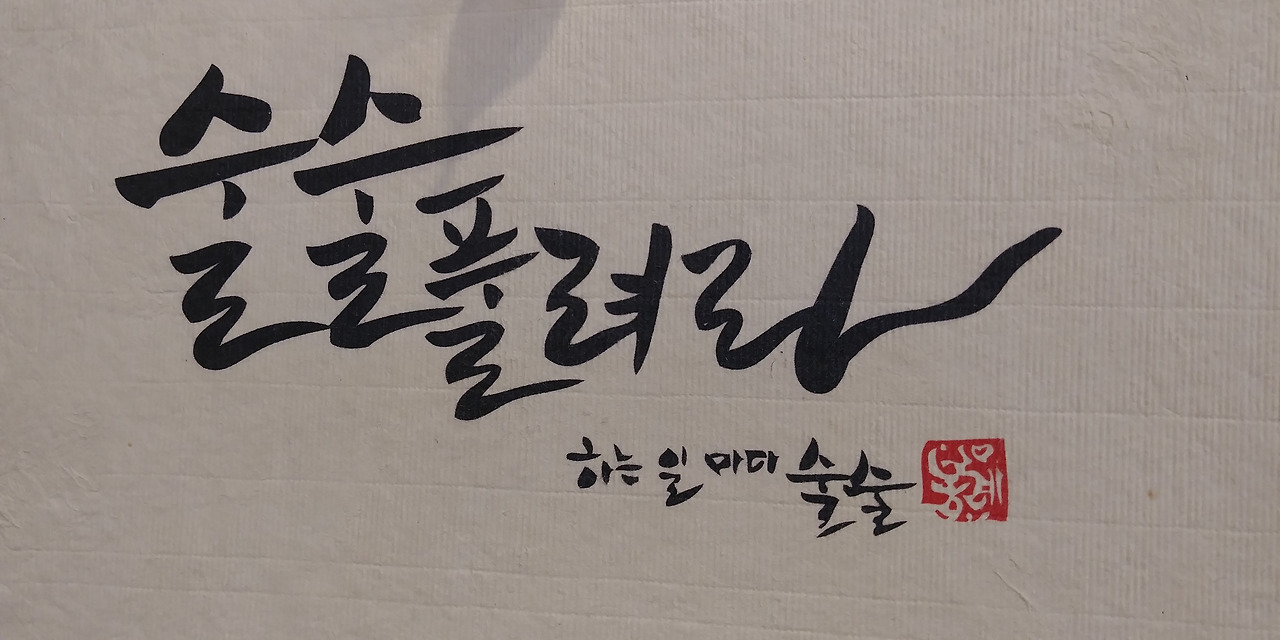 술술풀려라
하는 일 마다 술술